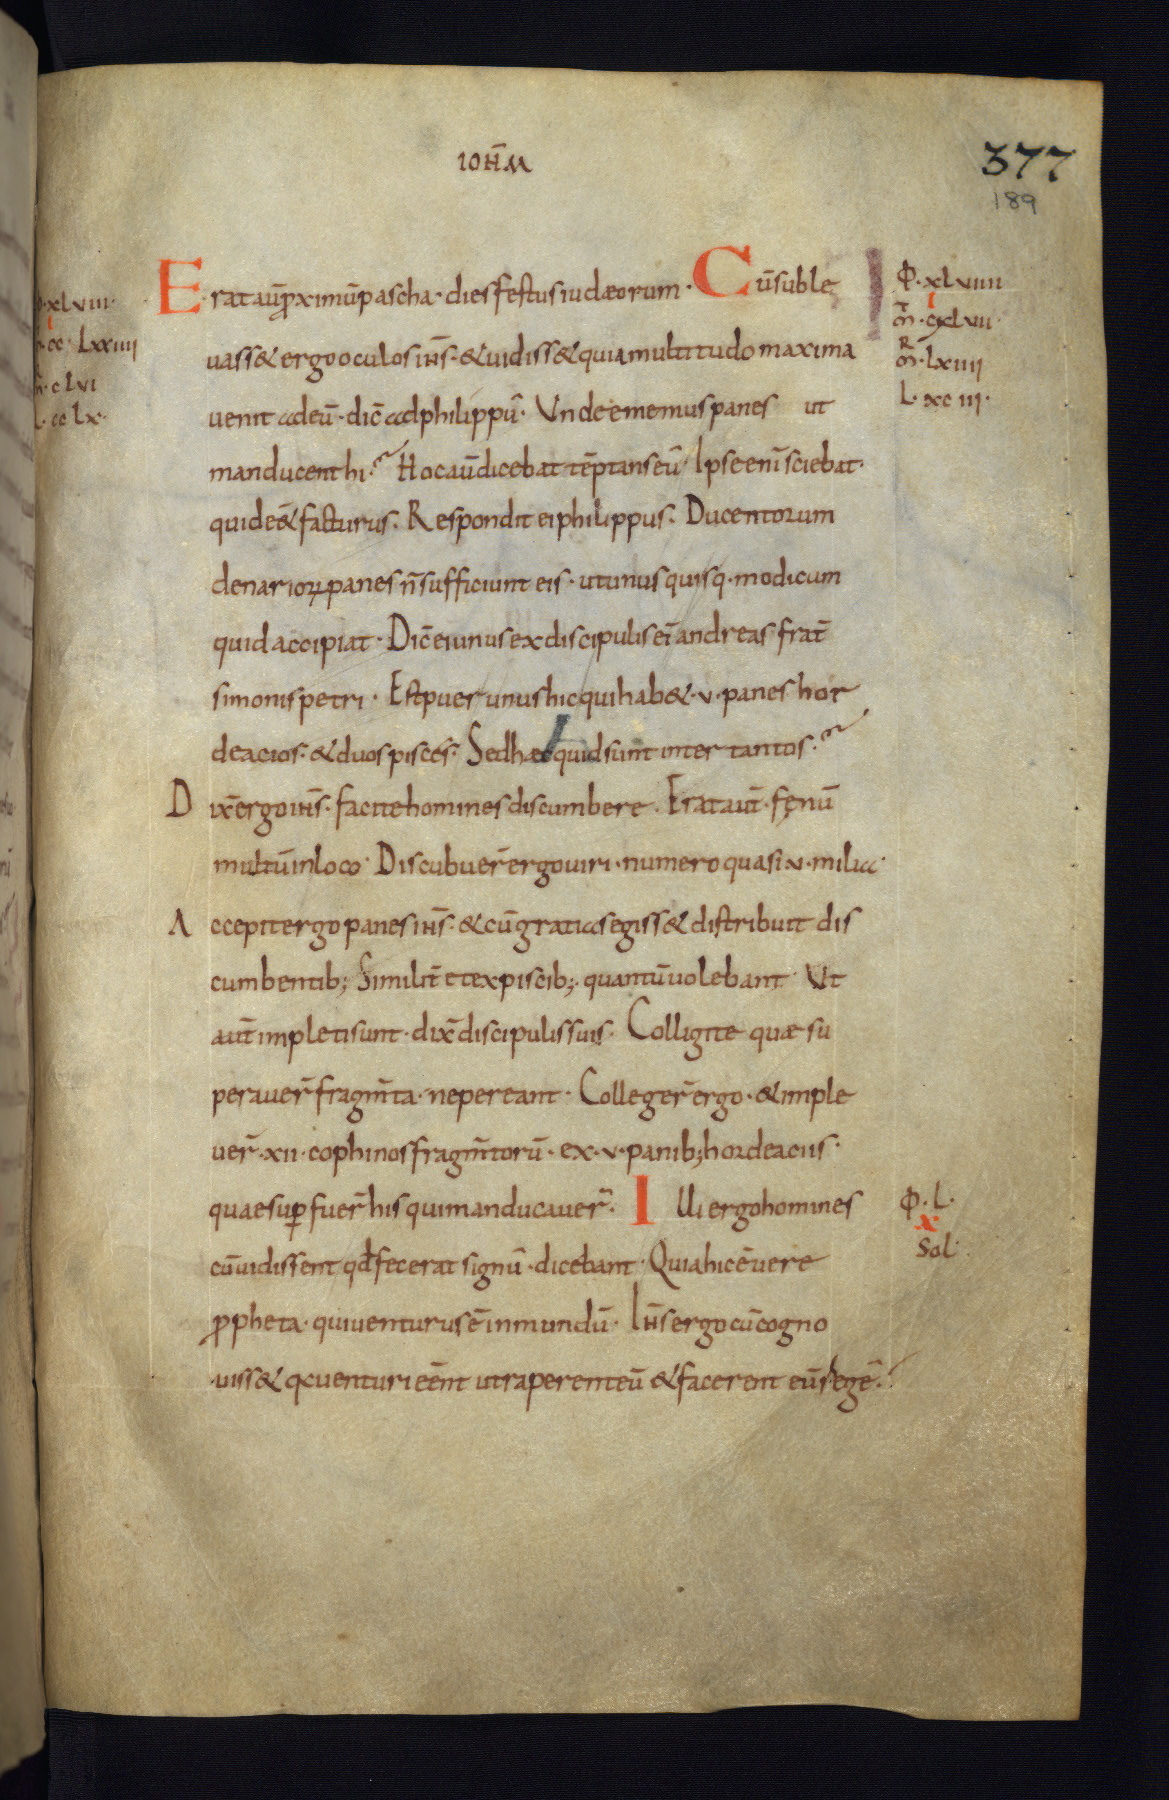 IOHM̄
377
189
Erat aū p̱ximū pascha· dies festus iudæorum· Cū suble
uass& ergo oculos ih̄s· & uidiss& quia multitudo maxima
uenit ad eū· dic̄ ad philippū· Unde ememus panes ut
manducent hi· Hoc aū dicebat tēptans eū Ipse enī sciebat·
quid eēt facturus· Respondit ei philippus· Ducentorum
denarioꝝ panes n̄ sufficiunt eis· ut unusquisq· modicum
quid accipiat· Dic̄ ei unus ex discipulis eī andreas frat̄
simonis petri· Est puer unus hic qui hab&·v·panes hor
deacios· & duos pisces· Sed hæc quid sunt inter tantos·
Dix̄ ergo ih̄s· facite homines discumbere· Erat aut̄· fęnū
multū in loco· Discubuer̄ ergo uiri· numero quasi·v·milia·
Accepit ergo panes ih̄s· & cū gratias egiss& distribuit dis
cumbentib; Similit̄ et ex piscib;· quantū uolebant· Ut
aut̄ impleti sunt· dix̄ discipulis suis· Colligite quæ su
perauer̄ fragm̄ta· ne pereant· Colleger̄ ergo· & imple
uer̄·xii·cophinos fragm̄torū· ex·v·panib; hordeaciis·
quae suꝑfuer̄ his qui manducauer̄· Illi ergo homines
cū uidissent qd̄ fecerat signū· dicebant· Quia hic ē uere
ꝓpheta· qui uenturus ē in mundū· Ih̄s ergo cū cogno
uiss& q· uenturi eēnt ut raperent eū & facerent eū regē·
·xlviii·
·cc·Lxxiiii
·clvi
·cc Lx·
Φ·xlviiii
m̄·cxlvii·
m̄·lxiiii
L·xciii·
Φ·L·
x
Sol·